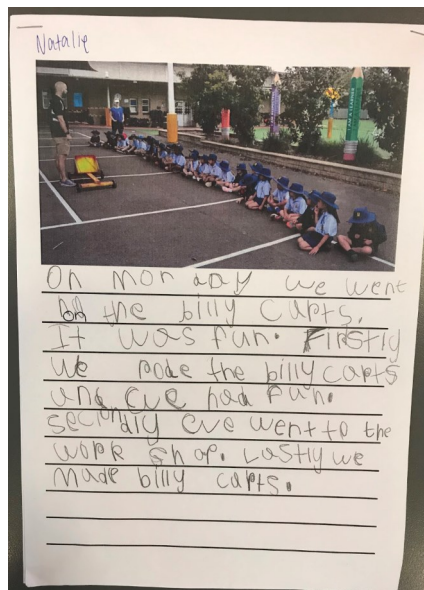 Natalie
On monday we went
on the billy carts.
It was fun. Firstly
we rode the billy carts
and eve had fun.
secondly eve went to the
work shop. Lastly we
made billy carts.